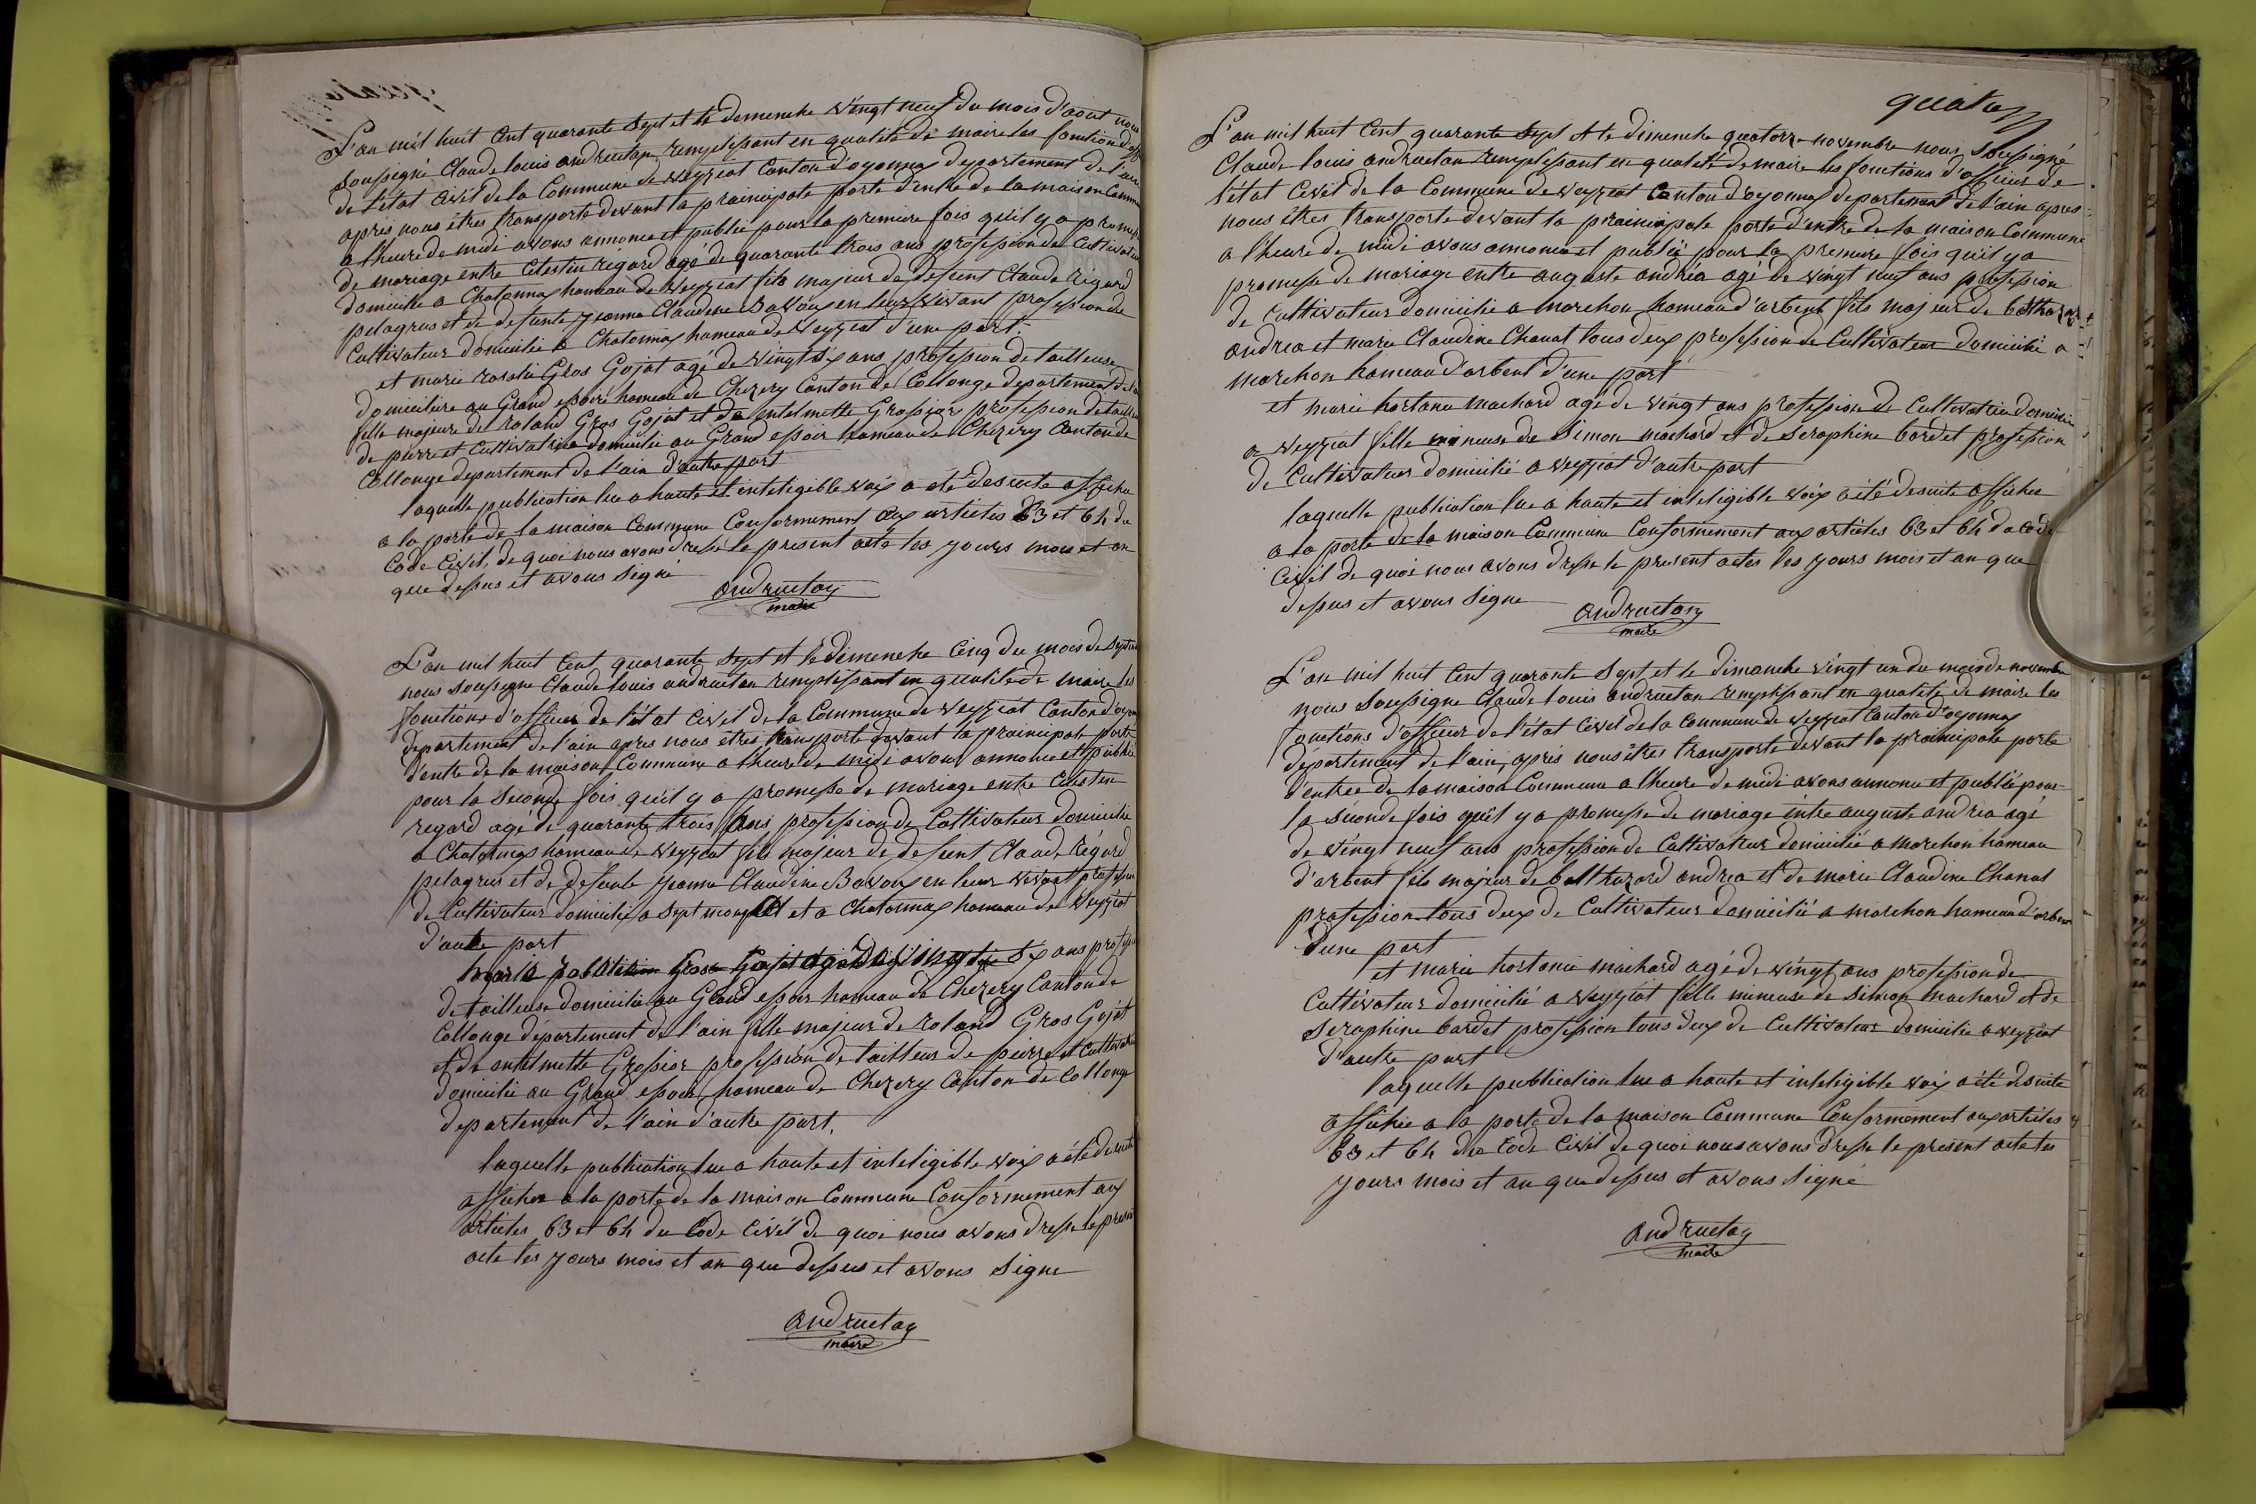 L'an mil huit Cent quarante Sept et le demenche vingt neuf du mois d'aout nous
soussigné Claude louis andruetan remplissant en qualité de maire les fonction d'off
de l'état Civil de la Commune de veyziat Canton d'oyonnax departement de l'ain
apres nous êtres transporte devant la prainicipale porte d'entre de la maison Commu
a l'heure de midi avons annonce et publié pour la premiere fois qu'il y a promes
de mariage entre Celestin regard agé de quarante trois ans profession de Cultivateur
domicilie a Chatonnax hameau de Veyziat fils majeur de defeunt Claude Régard
pelagrus et de defunte jeanne Claudine Bavoux en leur vivant profession de
Cultivateur domicilié a Chatonnax hameau de Veyziat d'une part.
et marie rosalie Gros Gojat agé de vingt six ans profession de tailleuse
domiciliere au Grand essoir hameau de Chezery Canton de Collonge departement de l'a
fille majeure de roland Gros Gojat et de entelmette Grossior profession de tailleur
de pierre et Cultivatrice domicilie au Grand essoir hameau de Chezery Canton de
Collonge departement de l'ain d'autre part
laquelle publication lue a haute et inteligible voix a été desuite affichee
a la porte de la maison Commune Conformement aux articles 63 et 64 du
Code Civil, de quoi nous avons dressé le present acte les jours mois et an
que dessus et avons signé
andruetan
maire
L'an mil huit Cent quarante Sept et le dimenche Cinq du mois de Septem
nous soussigne Claude louis andruetan remplissant en qualite de maire les
fonctions d'officier de l'état Civil de la Commune de veyziat Canton d'oyonn
departement de l'ain apres nous êtres transporte devant la prainicipale porte
d'entre de la maison Commune a l'heure de midi avons annonce et publié
pour la Seconde fois qu'il y a promesse de mariage entre Celestin
regard agé de quarante trois ans profession de Cultivateur domicilie
a Chatonnax hameau de Veyziat fils majeur de defeunt Claude Régard
pelagrus et de defeunte jeanne Claudine Bavoux en leur vivant profession
de Cultivateur domicilié a Sept moncel et a Chatonnax hameau de Veyziat
d'autre part
marie rosalie Gros Gojat agé de vingt six ans profession
de tailleuse domicilie au Grand essoir hameau de Chezery Canton de
Collonge département de l'ain fille majeur de roland Gros Gojat
et de entelmette Grossior profession de tailleur de pierre et Cultivatrice
domicilie au Grand essoir hameau de Chezery Canton de Collonge
departement de l'ain d'autre part.
laquelle publication lue a haute et inteligible voix a été desuite
affichee a la porte de la maison Commune Conformement aux
articles 63 et 64 du Code Civil de quoi nous avons dresse le present
acte les jours mois et an que dessus et avons Signe
andruetan
maire
quatorz
L'an mil huit Cent quarante Sept et le dimenche quatorze novembre nous Soussigné
Claude louis andruetan remplissant en qualité de maire les fonctions d'officier de
l'état Civil de la Commune de veyziat Canton d'oyonnax departement de l'ain apres
nous êtres transporte devant la prainicipale porte d'entre de la maison Commune
a l'heure de midi avons annonce et publié pour la premiere fois qu'il y a
promesse de mariage entre auguste andréa agé de vingt neuf ans profession
de Cultivateur domicilie a marchon hameau d'arbent fils majeur de balthazar
andrea et marie Claudine Chanat tous deux profession de Cultivateur domicilié a
marchon hameau d'arbent d'une part
et marie hortanse machard agé de vingt ans profession de Cultivatrice domicilie
a veyziat fille mineuse de Simon machard et de Seraphine bardet profession
de Cultivateur domicilié a veyziat d'autre part
laquelle publication lue a haute et inteligible voix a été desuite affichee
a la porte de la maison Commune Conformement aux articles 63 et 64 du code
Civil de quoi nous avons dresse le present actes les jours mois et an que
dessus et avons Signe
andruetan
maire
L'an mil huit Cent quarante Sept et le dimanche vingt un du mois de novembre
nous Soussigne Claude louis andruetan remplissant en qualité de maire les
fonctions d'officier de l'état Civil de la Commune de Veyziat Canton d'oyonnax
département de l'ain, après nous êtres transporte devant la prainicipale porte
d'entrée de la maison Commune a l'heure de midi avons annonce et publié pour
la séconde fois qu'il y a promesse de mariage entre auguste andrea agé
de vingt neuf ans profession de Cultivateur domicilié a marchon hameau
d'arbent fils majeur de balthazard andrea et de marie Claudine Chanat
profession tous deux de Cultivateur domicilié a marchon hameau d'arbent
d'une part
et marie hortanse machard agé de vingt ans profession de
Cultivateur domicilié a veyziat fille mineuse de Simon machard et de
Seraphine bardet profession tous deux de Cultivateur domicilie a veyziat
d'autre part
laquelle publication lue a haute et inteligible voix a été desuite
affichee a la porte de la maison Commune Conformement aux articles
63 et 64 du Code Civil de quoi nous avons dresse le présent acte les
jours mois et an que dessus et avons Signé
andruetan
maire